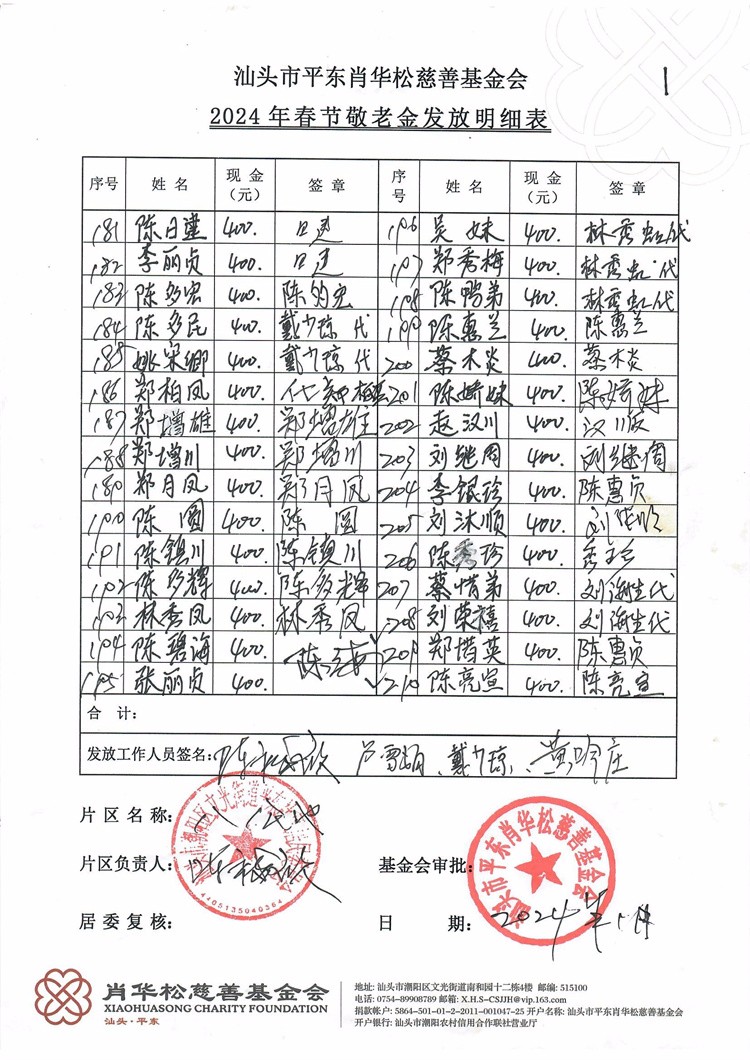 汕头市平东肖华松慈善基金会
1
2024年春节敬老金发放明细表
序号 姓名 现金（元） 签章 序号 姓名 现金（元） 签章
181 陈日建 400. 日建 196 吴妹 400. 林秀虹代
182 李丽贞 400. 日建 197 郑秀梅 400. 林秀虹代
183 陈多宏 400. 198 陈鸭弟 400. 林秀虹代
184 陈多民 400 戴少琼代 199 陈惠兰 400. 陈惠兰
185 姚宋卿 400 戴少琼代 200 蔡木炎 400. 蔡木炎
186 郑柏凤 400. 201 陈娇妹 400.
187 郑增雄 400 郑增雄 202 赵汉川 400.
188 郑增川 400 郑增川 203 刘继周 400. 刘继周
189 郑月凤 400. 郑月凤 204 李银珍 400. 陈惠贞
190 陈圆 400. 陈圆 205 刘沐顺 400.
191 陈镇川 400 陈镇川 206 陈秀珍 400. 秀珍
192 陈多辉 400 陈多辉 207 蔡惜弟 400. 刘海生代
193 林秀凤 400. 林秀凤 208 刘荣禧 400. 刘海生代
194 陈碧海 400. 209 郑惜英 400. 陈惠贞
195 张丽贞 400. 210 陈亮宣 400. 陈亮宣
合 计：
发放工作人员签名： 戴少琼、
片区名称：
片区负责人： 基金会审批：
汕头市平东肖华松慈善基金会
4405135040364
居委复核： 日 期： 2024年
肖华松慈善基金会
XIAOHUASONG CHARITY FOUNDATION
汕头·平东
地址: 汕头市潮阳区文光街道南和园十二栋4楼 邮编: 515100
电话: 0754-89908789 邮箱: X.H.S-CSJJH@vip.163.com
捐款帐户: 5864-501-01-2-2011-001047-25 开户名称: 汕头市平东肖华松慈善基金会
开户银行: 汕头市潮阳农村信用合作联社营业厅